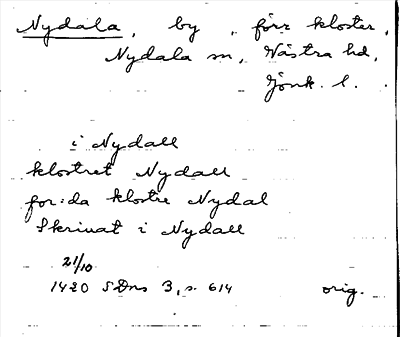 Nydala, by, förr kloster,
Nydala sn, Västra hd,
Jönk. l.
i Nydall
klostret Nydall
for:da klostre Nydal
Skriuat i Nydall
21/10
1420 SDns 3, s. 614 orig.